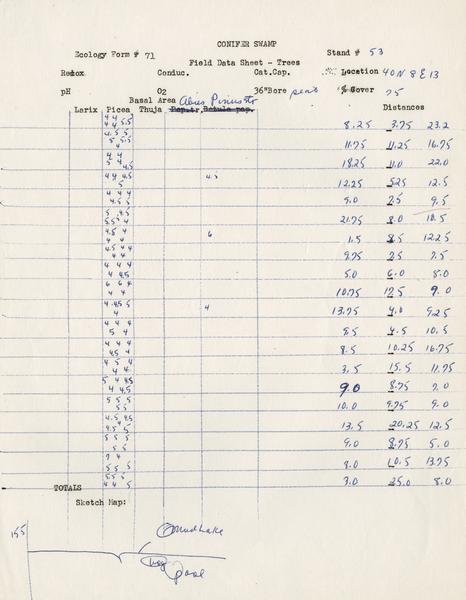 CONIFER SWAMP
Ecology Form # 71 Stand # 53
Field Data Sheet - Trees
Redox Conduc. Cat.Cap. Location 40N 8E13
pH O2 36"Bore peat % Cover 75
Basal Area Abies Pinus str
Larix Picea Thuja Pop.tr. Betula pap. Distances
4 4 5.5
8.25 3.75 23.2
4.5 5
5 5.5 11.75 11.25 16.75
4
4 4
5 4 4.5 18.25 11.0 22.0
4 4 4.5 4.5
5 12.25 525 12.5
4 4 4
4.5 5 9.0 7.5 9.5
5 4.5
5.5 4 21.75 8.0 18.5
4.5 4 6
4 4 1.5 8.5 12.25
4 4.5 4 4
4 4 9.75 7.5 7.5
4 4 4
4 4.5 5.0 6.0 8.0
6 6 4
4 4 10.75 17.5 9.0
4 4.5 5 4
4 13.75 4.0 9.25
4 4 4
5 4 8.5 4.5 10.5
4 4 4
4.5 4 8.5 10.25 16.75
4 5 4
4 4 3.5 15.5 11.75
5 4 4.5
4 4.5 9.0 8.75 7.0
5 5 5
5.5 10.0 9.75 9.0
4.5 4.5
4.5 5 13.5 20.25 12.5
5 5 5
5 5 9.0 8.75 5.0
7 4
5 5 5 8.0 10.5 13.75
5 5 5
4 4 5 3.0 25.0 8.0
TOTALS
Sketch Map:
155 Mud Lake
Bog
Pool